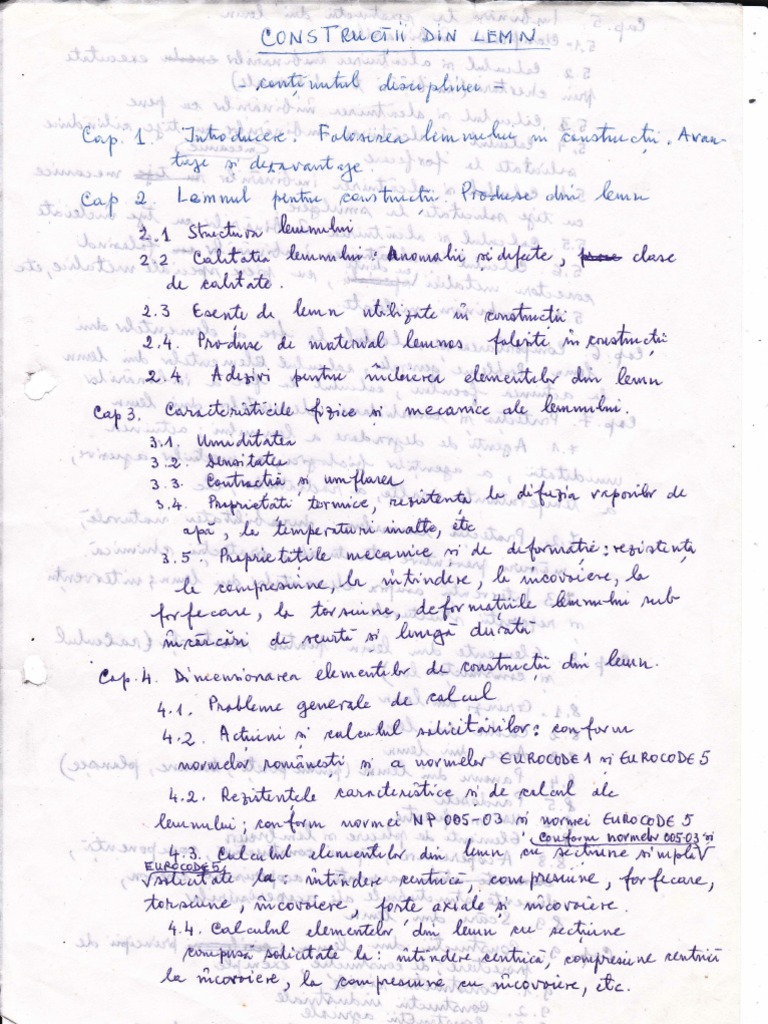 CONSTRUCȚII DIN LEMN
- conținutul disciplinei -
Cap. 1. Introducere. Folosirea lemnului în construcții. Avan-
taje și dezavantaje.
Cap 2. Lemnul pentru construcții. Produse din lemn
2.1 Structura lemnului
2.2. Calitatea lemnului: Anomalii și defecte, clase
de calitate.
2.3 Esențe de lemn utilizate în construcții
2.4. Produse de material lemnos folosite în construcții
2.4 Adezivi pentru încleierea elementelor din lemn
Cap 3. Caracteristicile fizice și mecanice ale lemnului.
3.1. Umiditatea
3.2. Densitatea
3.3. Contracția și umflarea
3.4. Proprietăți termice, rezistența la difuzia vaporilor de
apă, la temperaturi înalte, etc
3.5. Proprietățile mecanice și de deformație: rezistența
la compresiune, la întindere, la încovoiere, la
forfecare, la torsiune, deformațiile lemnului sub
încărcări de scurtă și lungă durată
Cap. 4. Dimensionarea elementelor de construcții din lemn.
4.1. Probleme generale de calcul
4.2. Acțiuni și calculul solicitărilor: conform
normelor românești și a normelor EUROCODE 1 și EUROCODE 5
4.2. Rezistențele caracteristice și de calcul ale
lemnului; conform normei NP 005-03 și normei EUROCODE 5
conform normelor 005-03 și
4.3. Calculul elementelor din lemn cu secțiune simplă
EUROCODE 5,
solicitate la: întindere centrică, compresiune, forfecare,
torsiune, încovoiere, forțe axiale și încovoiere.
4.4. Calculul elementelor din lemn cu secțiune
compusă solicitate la: întindere centrică, compresiune centrică
la încovoiere, la compresiune cu încovoiere, etc.